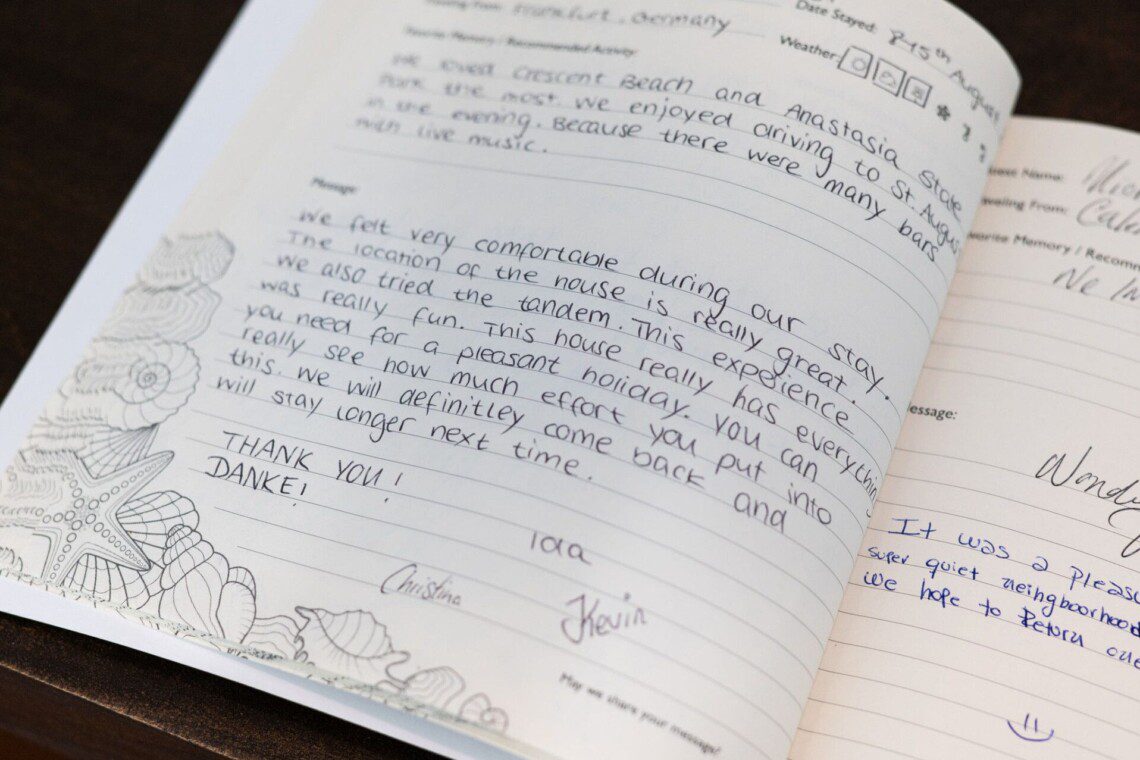 Traveling From: Frankfurt, Germany
Date Stayed: 8-15th August
Weather:
Favorite Memory / Recommended Activity:
We loved Crescent Beach and Anastasia State
Park the most. We enjoyed driving to St. Augus
in the evening. Because there were many bars
with live music.
Message:
We felt very comfortable during our stay.
The location of the house is really great.
We also tried the tandem. This experience
was really fun. This house really has everything
you need for a pleasant holiday. You can
really see how much effort you put into
this. We will definitley come back and
will stay longer next time.
THANK YOU!
DANKE!
Christina
Kevin
May we share your message?
Name:
Traveling From:
Favorite Memory / Recomm
We
essage:
It was a pleasu
super quiet neingboorhood
we hope to Return